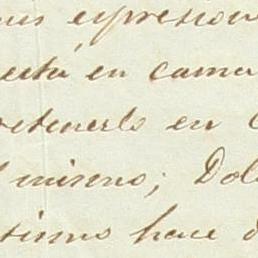 expresion
está en cama
retenerlo en
mismo; Dol
tisimo hace